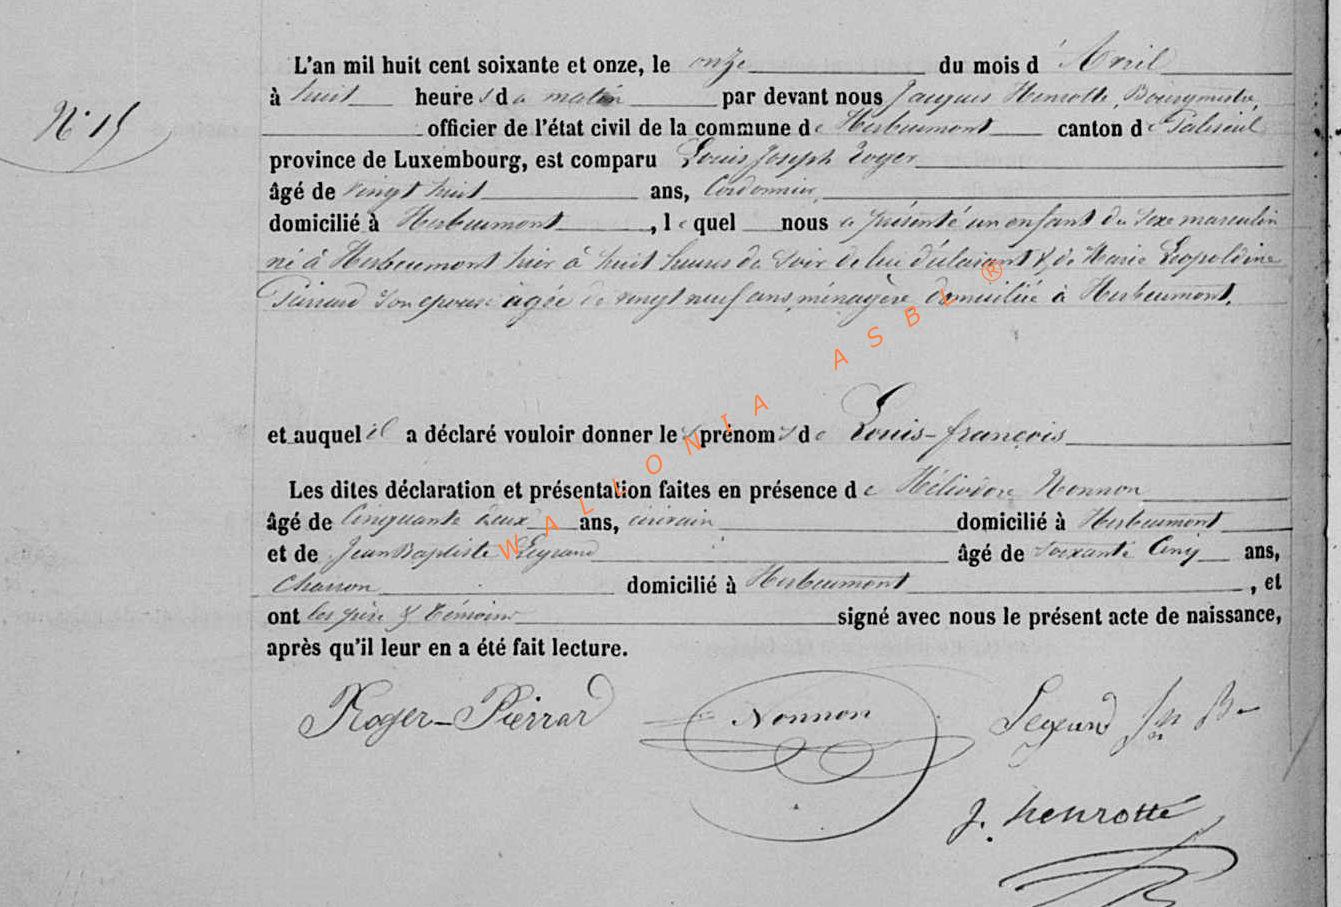 L'an mil huit cent soixante et onze, le onze du mois d'Avril
N° 15
à huit heures du matin par devant nous Jacques Henrotte, Bourgmestre,
officier de l'état civil de la commune de Herbeumont canton de Paliseul
province de Luxembourg, est comparu Louis Joseph Roger
âgé de vingt huit ans, Cordonnier,
domicilié à Herbeumont, lequel nous a présenté un enfant du sexe masculin
né à Herbeumont hier à huit heures du soir de lui déclarant & de Marie Léopoldine
Pierrard son épouse âgée de vingt neuf ans, ménagère domiciliée à Herbeumont.
et auquel il a déclaré vouloir donner les prénoms de Louis-François
Les dites déclaration et présentation faites en présence de Hélidore Nonnon
âgé de Cinquante deux ans, domicilié à Herbeumont
et de Jean Baptiste Legrand âgé de soixante Cinq ans,
Charron domicilié à Herbeumont, et
ont les père & témoins signé avec nous le présent acte de naissance,
après qu'il leur en a été fait lecture.
Roger-Pierrard Nonnon Legrand Jn Bte
J. henrotte
WALLONIA ASBL ®